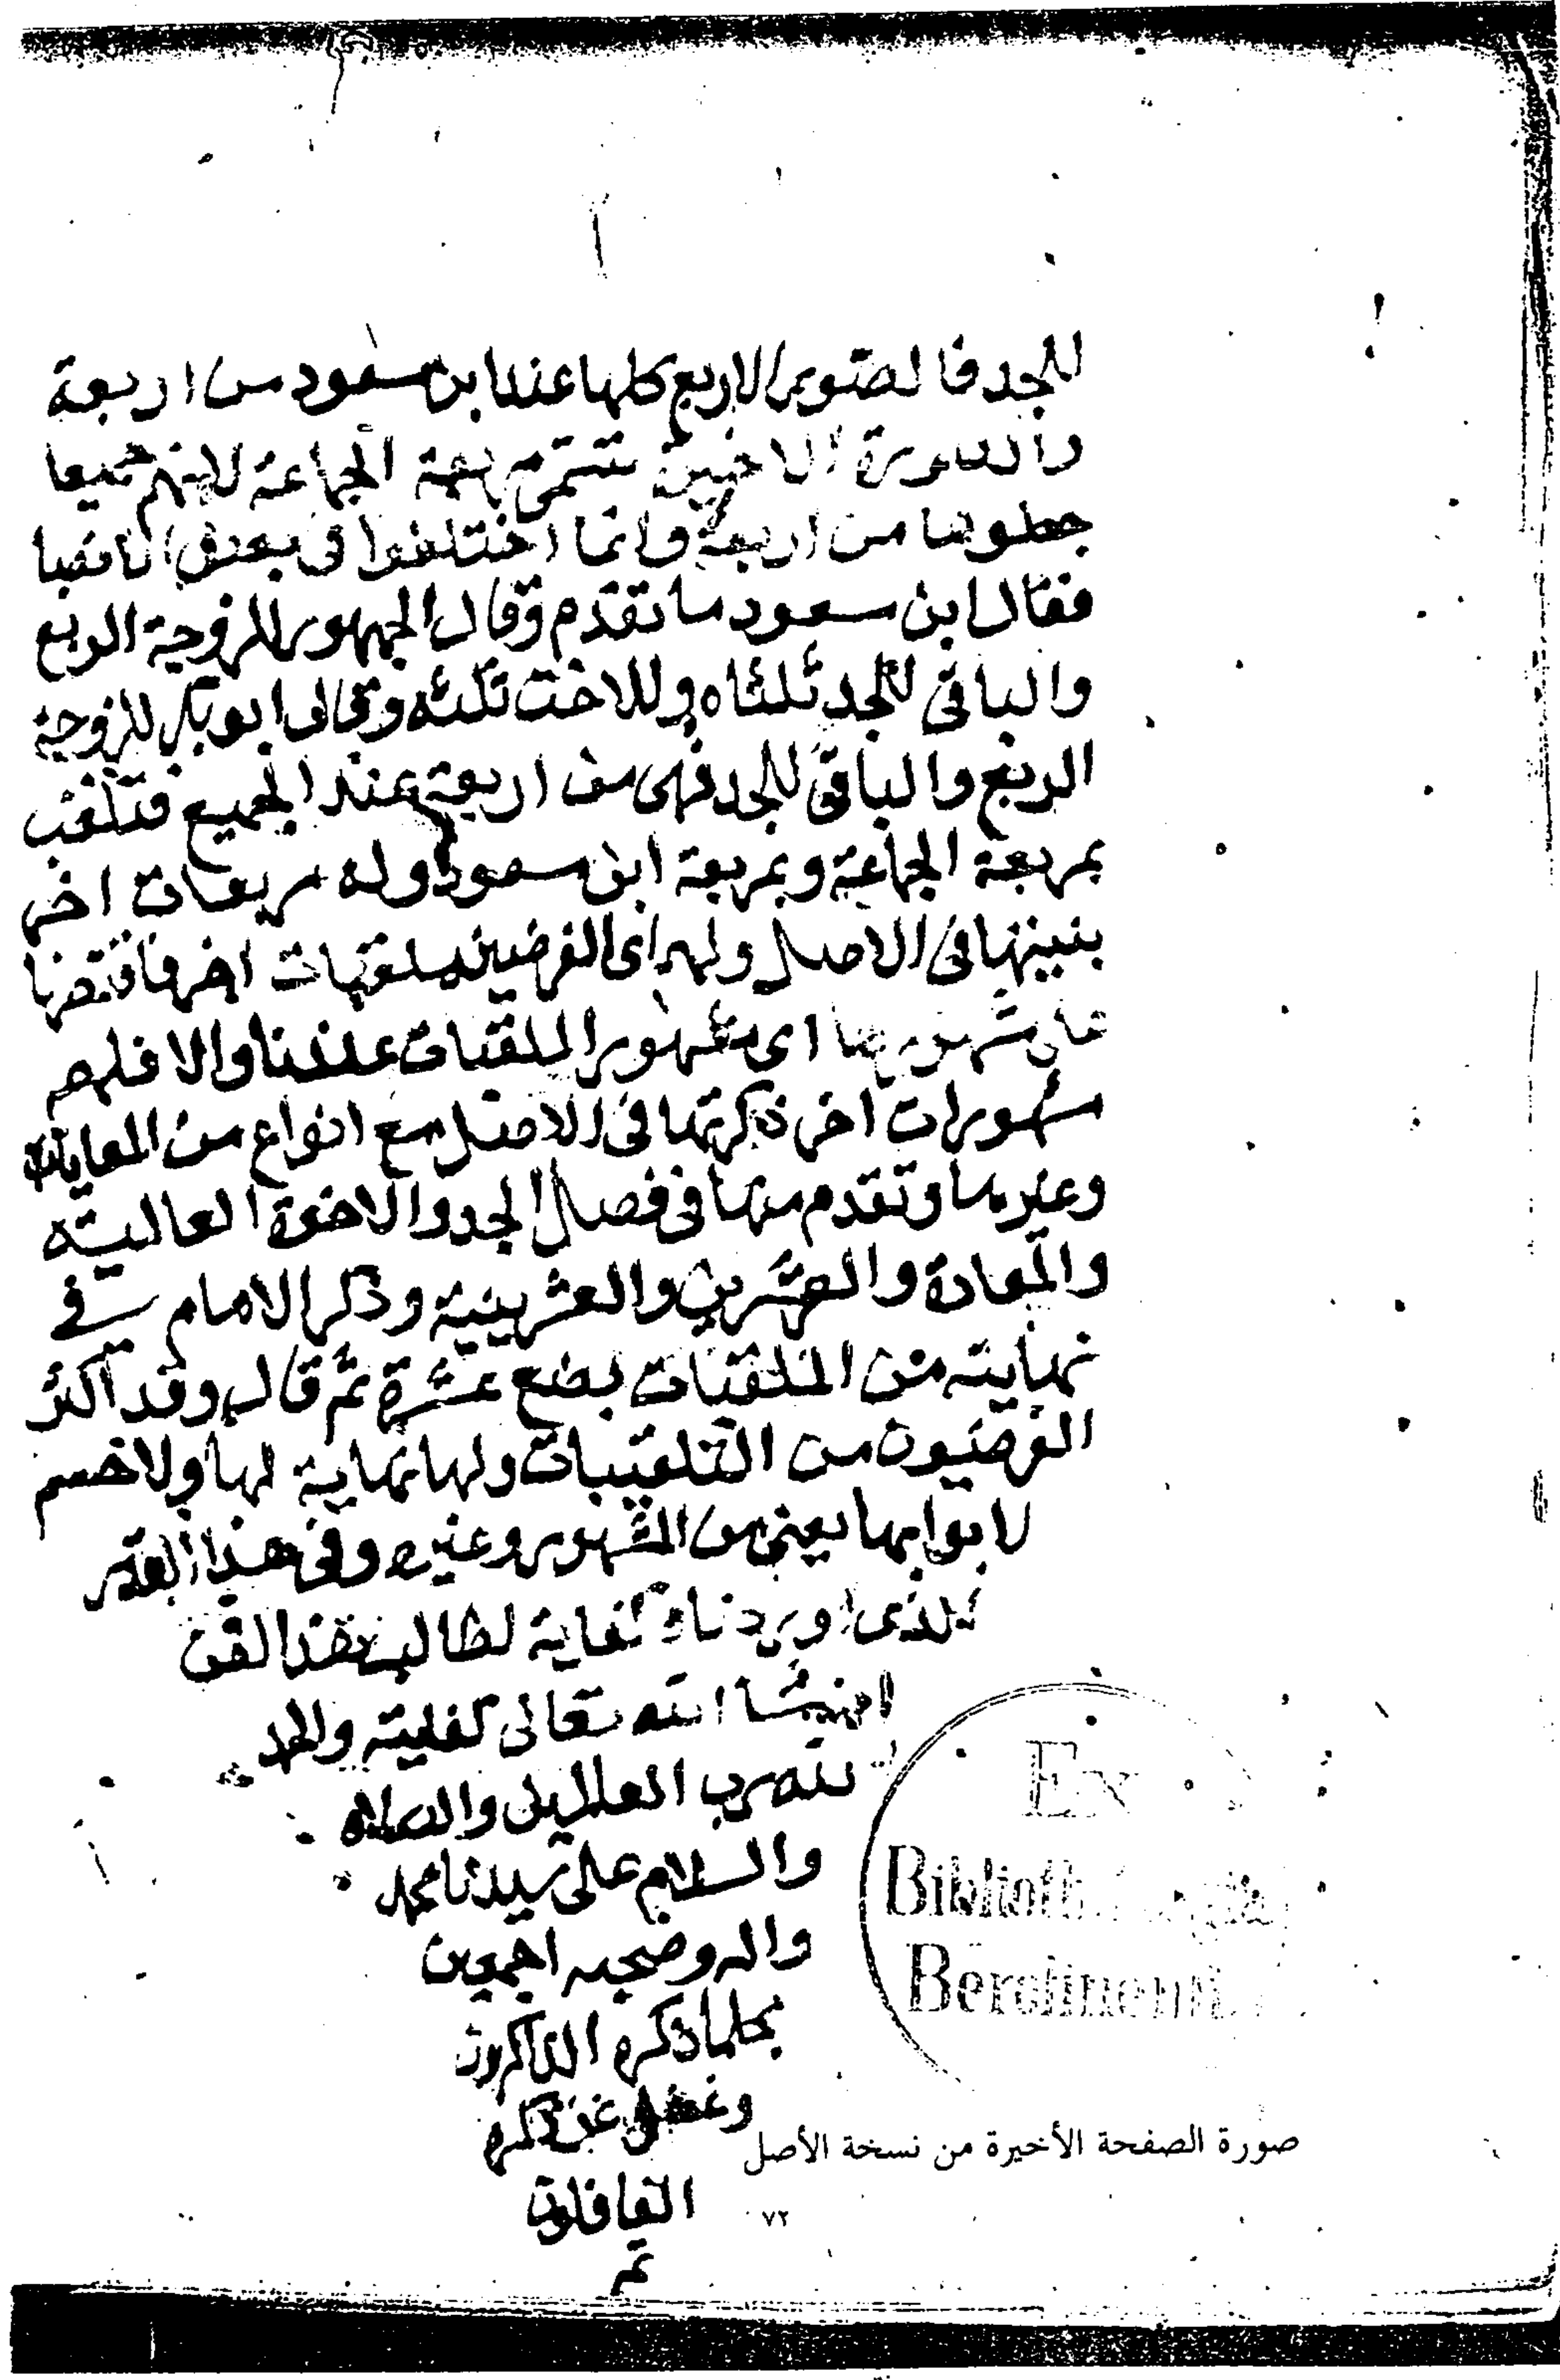 للجد فالصور الاربع كلها عند ابن مسعود من اربعة
والصورة الاخيرة تسمى مربعة الجماعة لانهم جميعا
جعلوها من اربعة وانما اختلفوا فى بعض الانصبا
فقال ابن مسعود ما تقدم وقال الجمهور للزوجة الربع
والباقى للجد ثلثاه وللاخت ثلثه وقال ابو بكر للزوجة
الربع والباقى للجد فهى من اربعة عند الجميع فتلقب
بمربعة الجماعة وبمربعة ابن مسعود وله مربعات اخر
بنيتها فى الاصل ولهم اى الفرضيين ملقبات اخر فاقتصرنا
على مشهورها اى مشهور الملقبات عندنا والا فلهم
مشهورات اخر ذكرتها فى الاصل مع انواع من المعاياة
وغيرها وتقدم منها فى فصل الجد والاخوة العالية
والمعادة والعشرين والعشرينية وذكر الامام فى
نهايته من الملقبات بضع عشرة ثم قال وقد اكثر
الفرضيون من التلقيبات ولها نهاية لها ولا حسم
لابوابها يعنى من المشهور وغيره وفى هذا القدر
الذى اوردناه كفاية لطالب هذا الفن
ان شا الله تعالى كفاية والحمد
لله رب العالمين والصلاة
والسلام على سيدنا محمد
واله وصحبه اجمعين
كلما ذكره الذاكرون
وغفل عن ذكره
الغافلون
تم
Ex
Biblioth
Berolinensi
صورة الصفحة الأخيرة من نسخة الأصل
٧٢